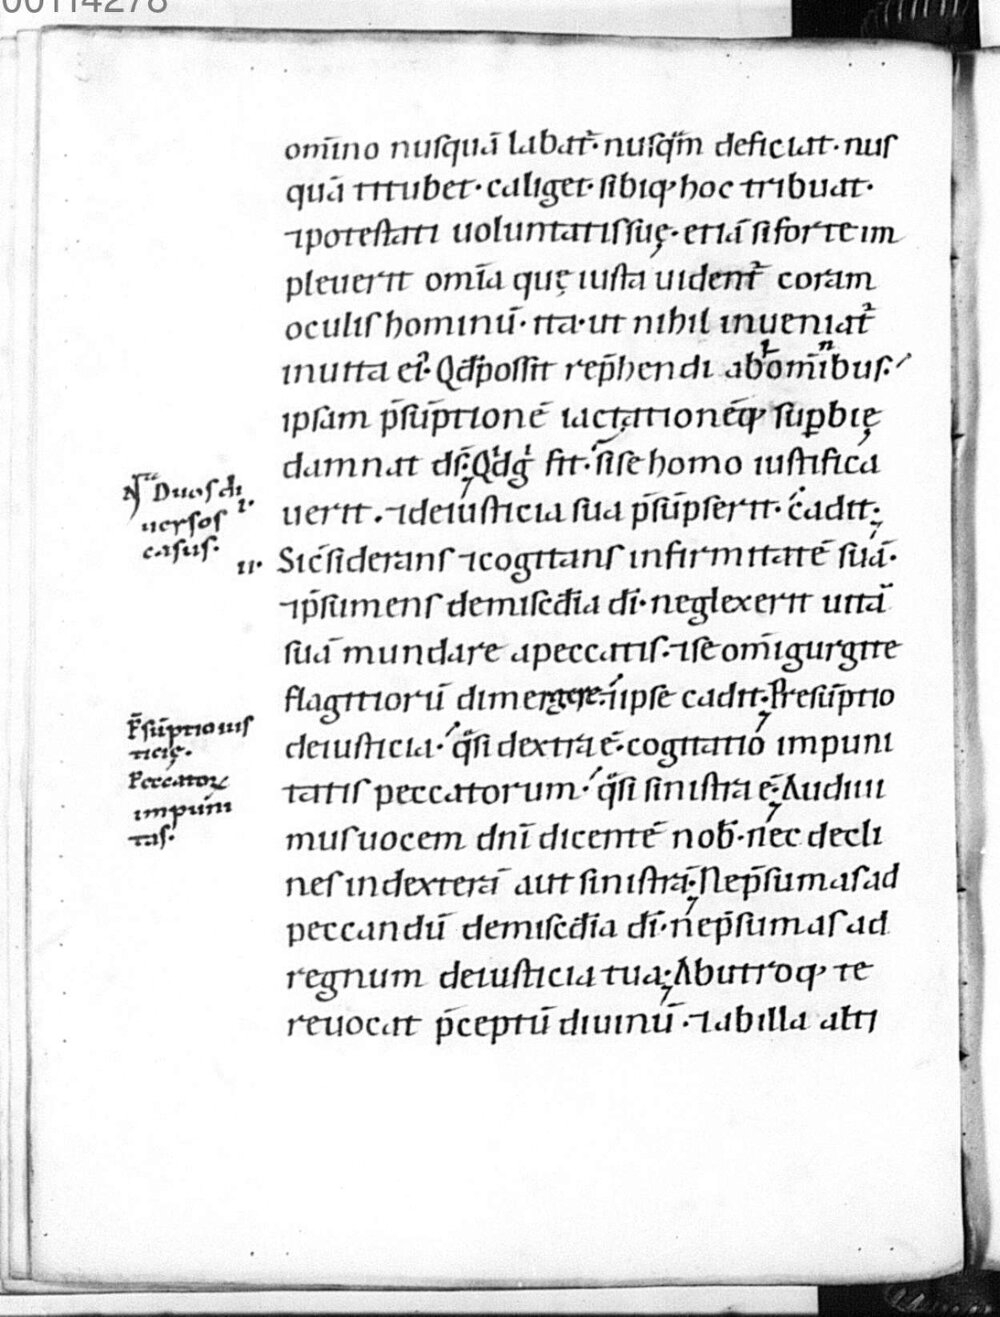 00114278
om̄ino nusquā labat᷑· nusq̄m deficiat· nus
quā titubet· caliget· sibiq; hoc tribuat·
⁊potestati uoluntatis suę· etiā si forte im
pleuerit om̄ia quę iusta uident᷑ coram
oculis hominū· ita· ut nihil inueniat᷑
in uita ei᷒· Qd̄ possit rep̄hendi ab om̄ibus·
ipsam p̄sūptionē iactationēq; supbię
damnat ds̄; fit· si se homo iustifica
uerit· ⁊de iusticia sua p̄sūpserit· cadit;
Si c̄siderans ⁊cogitans infirmitatē suā·
⁊p̄sumens de misc̄dia dī· neglexerit uitā
suā mundare a peccatis· ⁊se om̄i gurgite
flagitiorū dimergere· ipse cadit; Presūptio
de iusticia· q̄si dextra ē· cogitatio impuni
tatis peccatorum· q̄si sinistra ē; Audiui
mus uocem dn̄i dicentē nob̄· nec decli
nes in dexterā aut sinistrā; Ne p̄sumas ad
peccandū de misc̄dia dī· ne p̄sumas ad
regnum de iusticia tua; Ab utroq; te
reuocat p̄ceptū diuinū· ⁊ab illa alti
Duos di
uersos
casus·
i·
ii·
P̄sūptio ius
ticię·
Peccatoꝝ
impuni
tas·